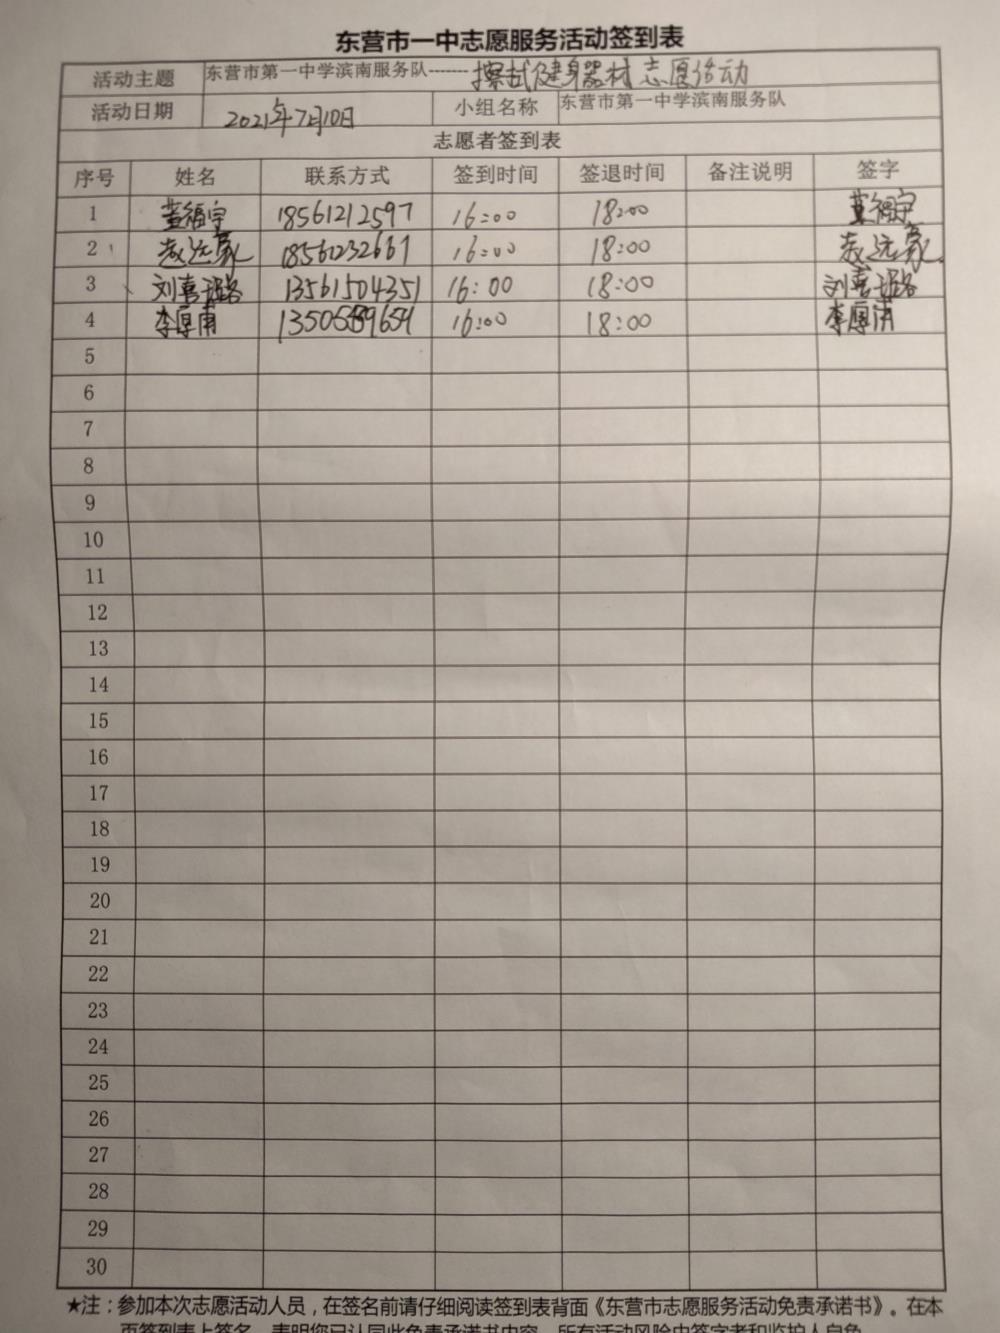 东营市一中志愿服务活动签到表
活动主题 东营市第一中学滨南服务队-------擦拭健身器材志愿活动
活动日期 2021年7月10日 小组名称 东营市第一中学滨南服务队
志愿者签到表
序号 姓名 联系方式 签到时间 签退时间 备注说明 签字
1 董福宇 18561212597 16:00 18:00 董福宇
2 赵远豪 18561232661 16:00 18:00 赵远豪
3 刘喜 13561504351 16:00 18:00 刘喜
4 李厚甫 16:00 18:00 李厚甫
5
6
7
8
9
10
11
12
13
14
15
16
17
18
19
20
21
22
23
24
25
26
27
28
29
30
★注：参加本次志愿活动人员，在签名前请仔细阅读签到表背面《东营市志愿服务活动免责承诺书》。在本
页签到表上签名，表明您已认同此免责承诺书内容，所有活动风险由签字者和监护人自负